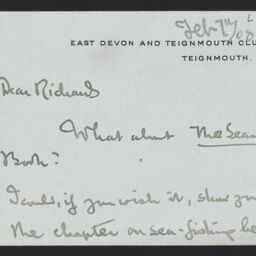 Feb 7th 08
EAST DEVON AND TEIGNMOUTH CLU
TEIGNMOUTH.
Dear Richard
What about The Sea
Book?
I could, if you wish it, show you
the chapter on sea-fishing be